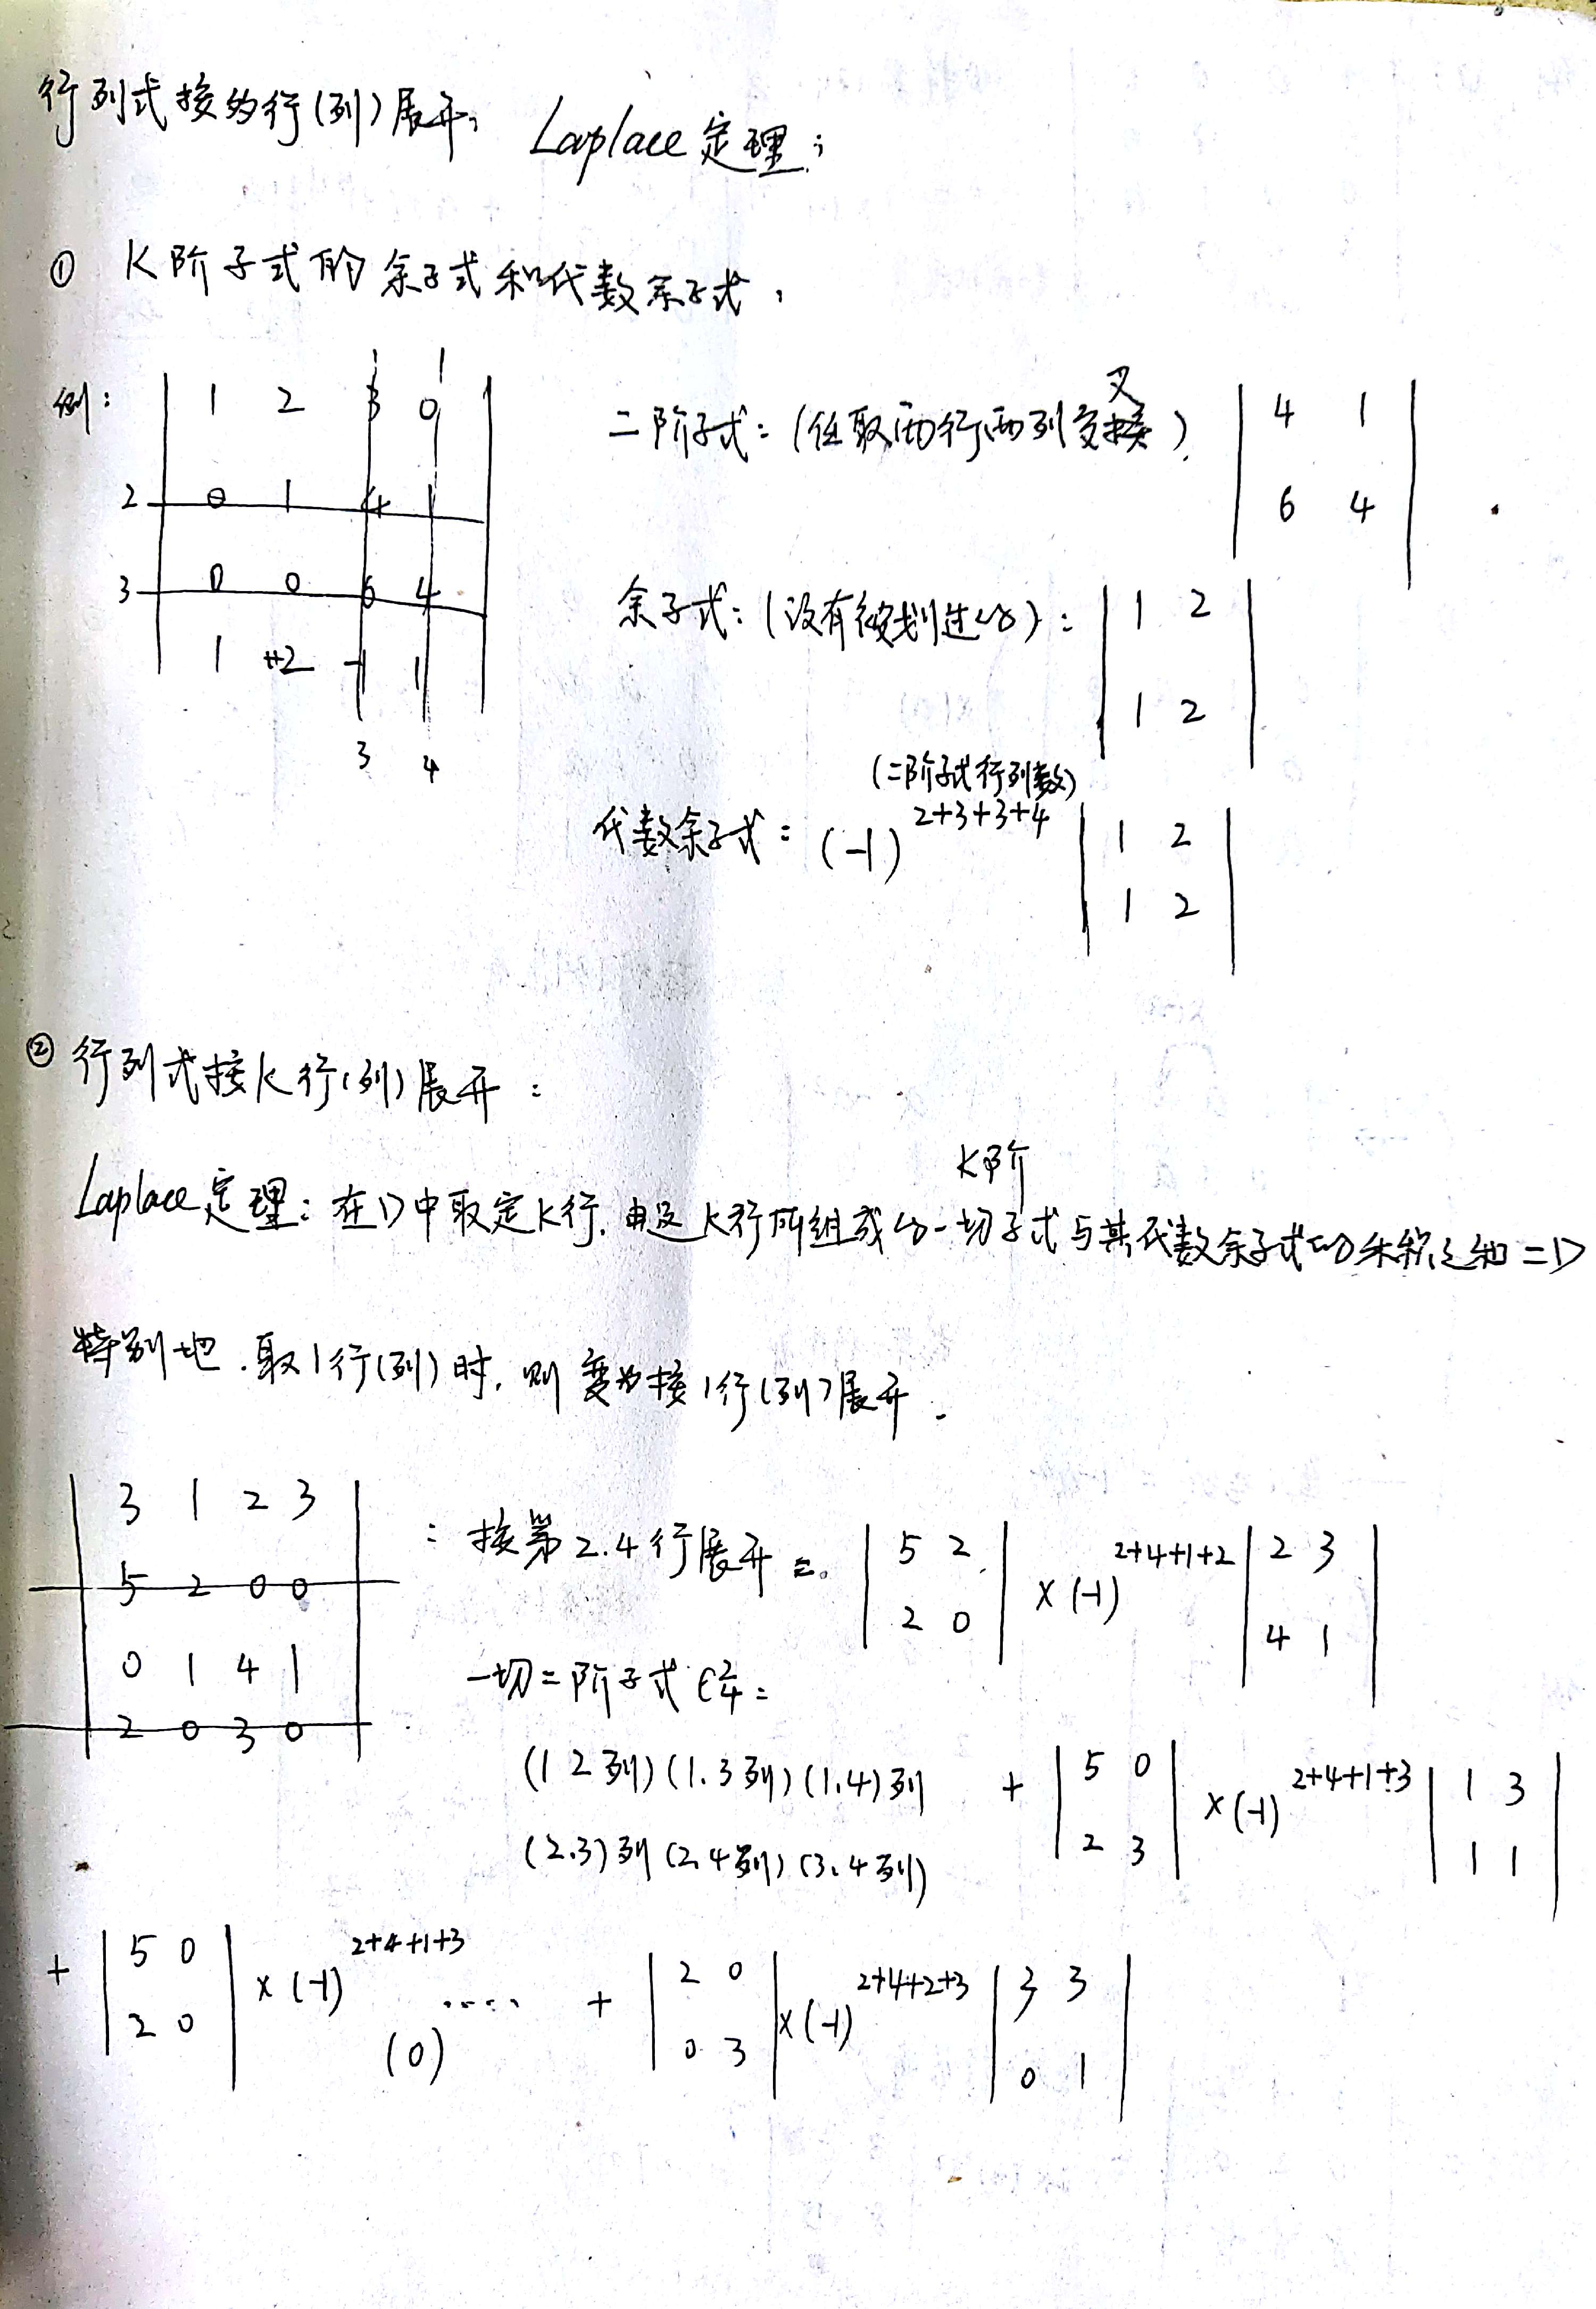 行列式按多行(列)展开, Laplace定理:
① K阶子式的余子式和代数余子式,
例: | 1 2 3 0 |
2 | 0 1 4 1 |
3 | 0 0 6 4 |
| 1 2 -1 1 |
3 4
二阶子式:(任取两行两列交叉) | 4 1 |
| 6 4 |
余子式:(没有被划进的): | 1 2 |
| 1 2 |
(二阶子式行列数)
代数余子式: (-1)^2+3+3+4 | 1 2 |
| 1 2 |
② 行列式按K行(列)展开:
Laplace定理: 在D中取定K行, 由这K行所组成的一切K阶子式与其代数余子式的乘积之和=D
特别地.取1行(列)时, 则变为按1行(列)展开.
| 3 1 2 3 |
| 5 2 0 0 |
| 0 1 4 1 |
| 2 0 3 0 |
: 按第2.4行展开 = | 5 2 | ×(-1)^2+4+1+2 | 2 3 |
| 2 0 | | 4 1 |
一切二阶子式 C²₄=
(1 2列)(1.3列)(1.4)列
(2.3)列(2.4列)(3.4列)
+ | 5 0 | ×(-1)^2+4+1+3 | 1 3 |
| 2 3 | | 1 1 |
+ | 5 0 | ×(-1)^2+4+1+3 ····· + | 2 0 | ×(-1)^2+4+2+3 | 3 3 |
| 2 0 | (0) | 0 3 | | 0 1 |